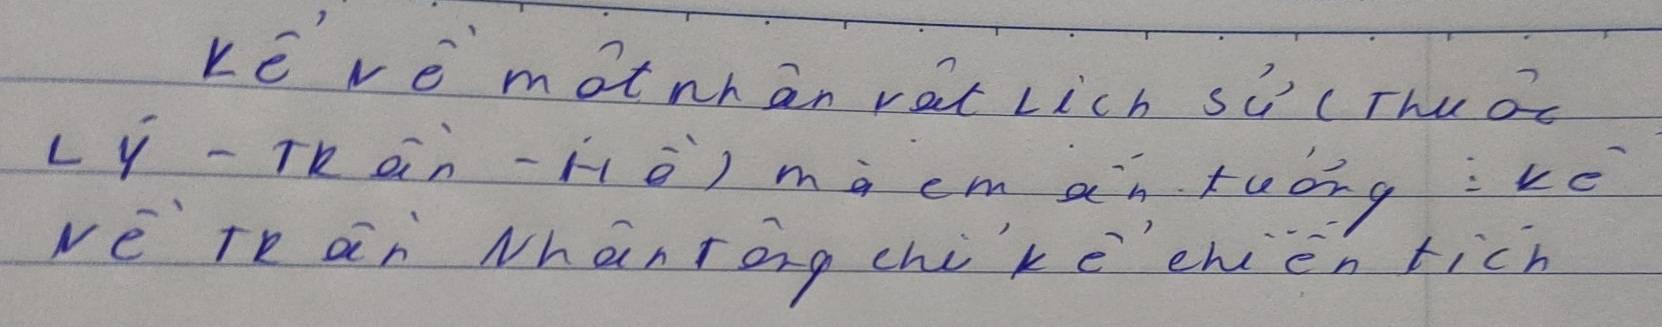 Kể về một nhân vật Lịch sử (Thuộc
Lý - Trần - Hồ) mà em ấn tượng : kể
về Trần Nhân Tông chỉ kể chiến tích